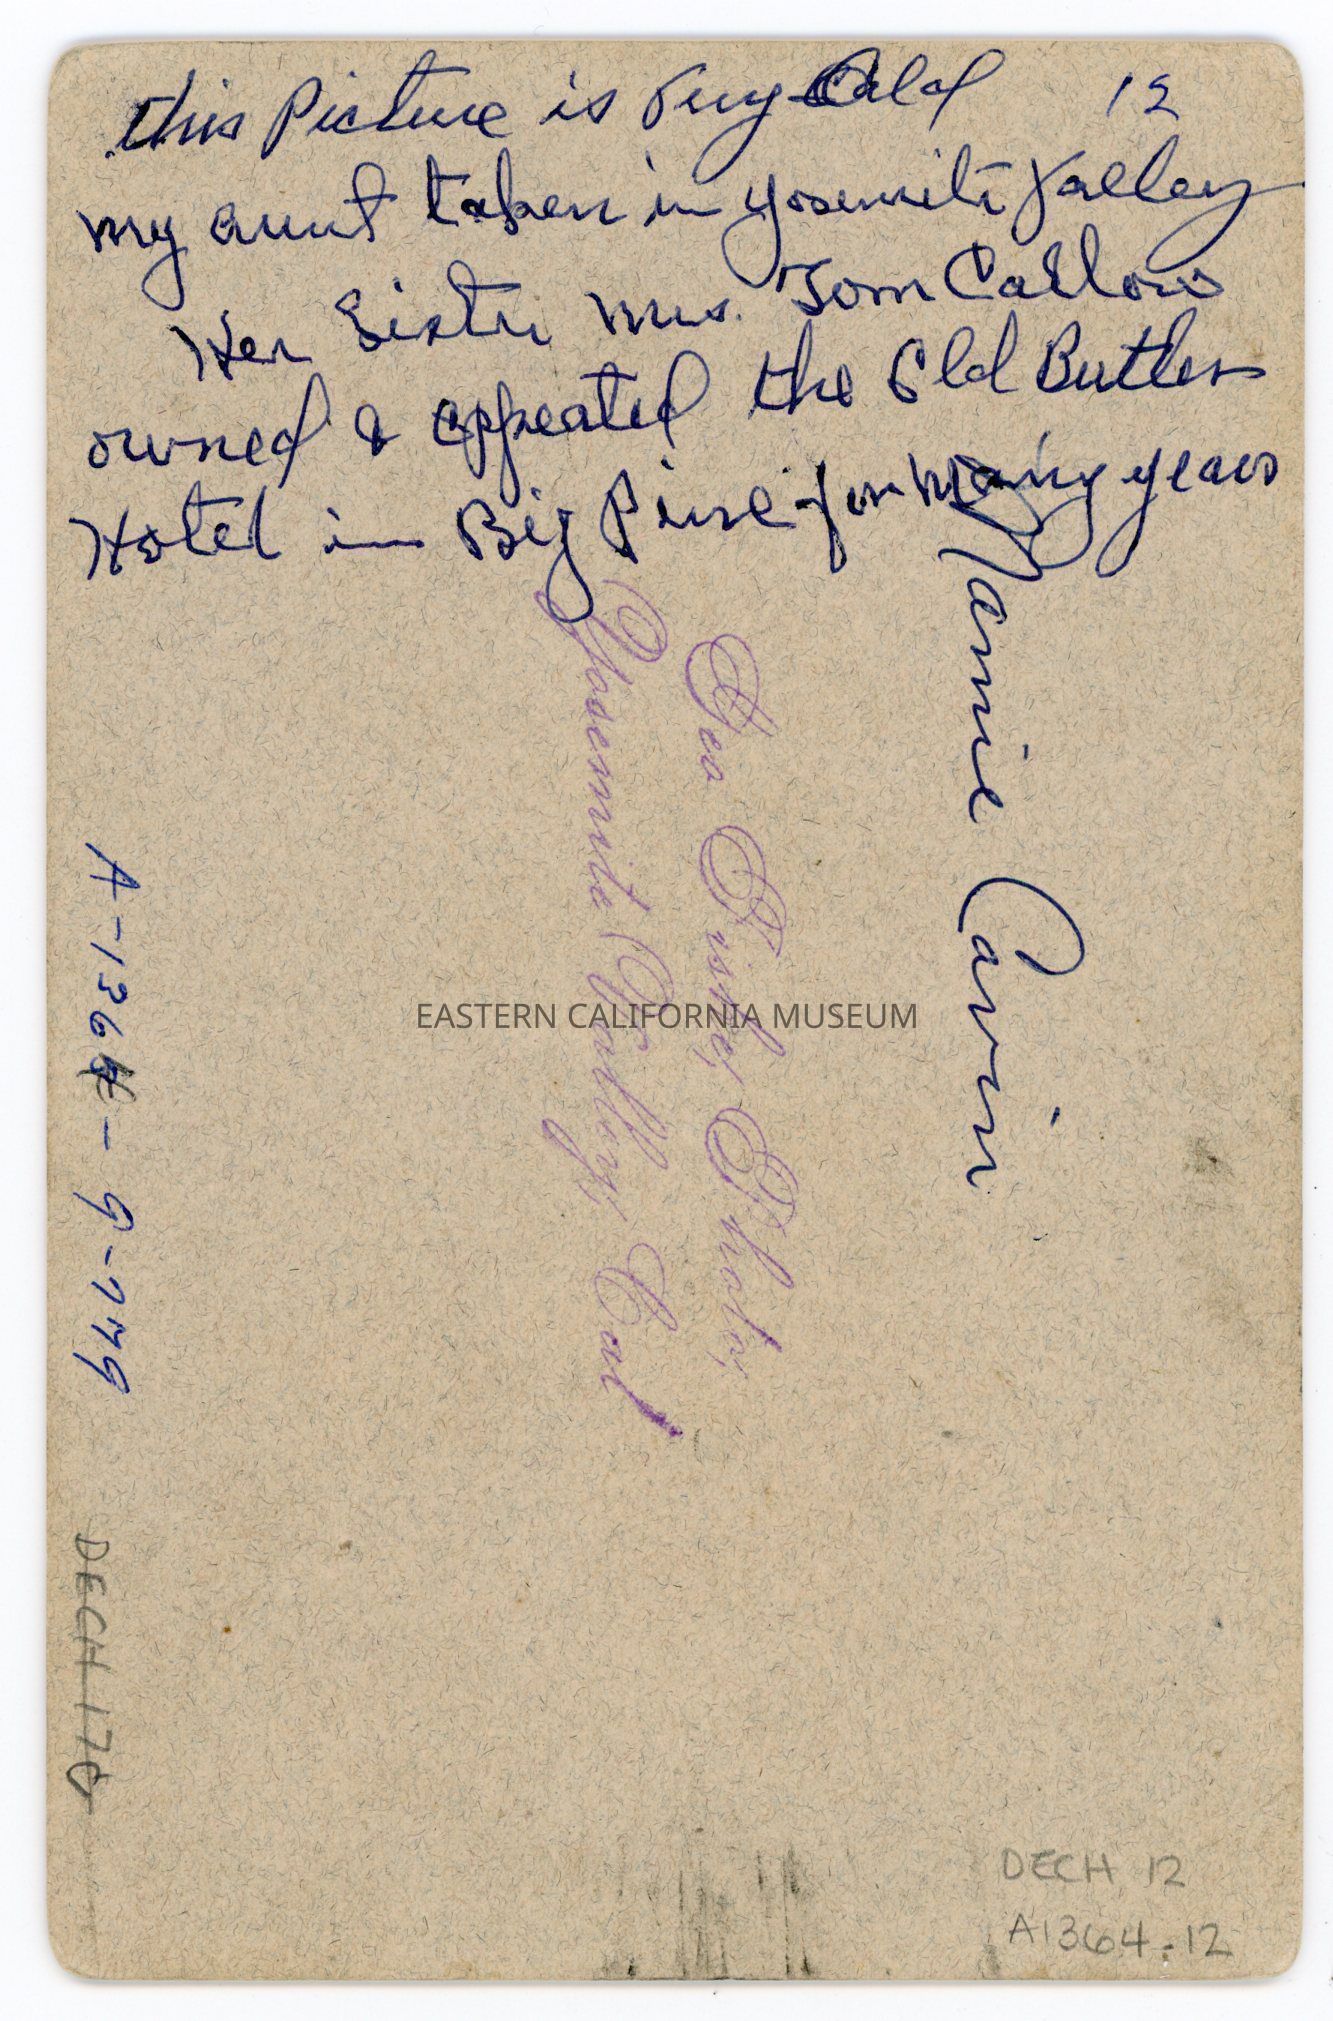 this Picture is Very Old 12
my aunt taken in yosemiti Valley
Her Sister mrs. Tom Callow
owned & oppeated the Old Butler
Hotel in Big Pine for Many years
Nannie Carvin
Geo Fiske, Photo,
Yosemite Valley, Cal
EASTERN CALIFORNIA MUSEUM
A-1364-9-779
DECH 170
DECH 12
A1364.12